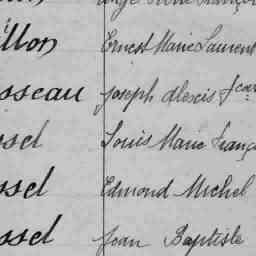 illon Ernest Marie Laurent
sseau Joseph Alexis Jean
ssel Louis Marie Franç
ssel Edmond Michel
ssel Jean Baptiste